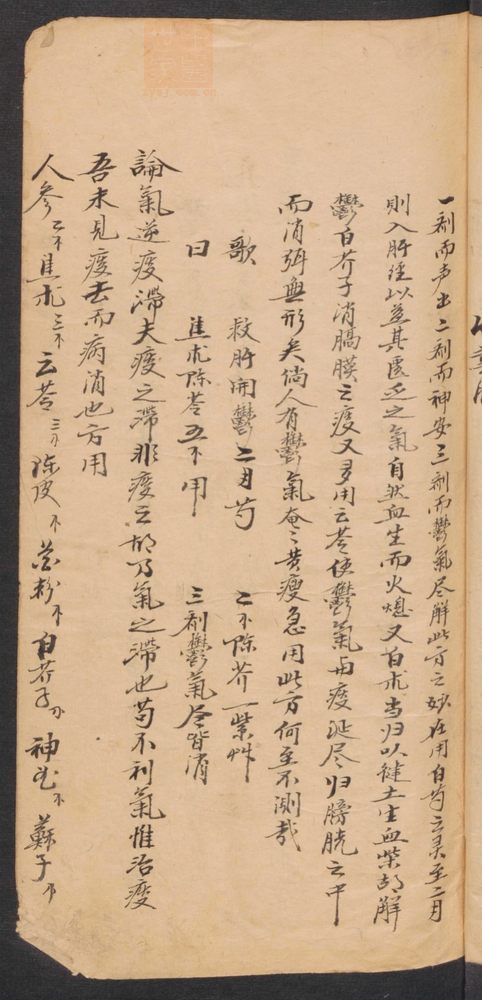 一剂而声出二剂而神安三剂而鬱氣尽解此方之妙在用白芍之灵至二月
則入肝経以益其匮乏之氣自然血生而火熄又白术当归以健土生血柴胡解
鬱白芥子消膈膜之痰又多用云苓使鬱氣与痰涎尽归膀胱之中
而消弭無形矣倘人有鬱氣奄奄黄瘦急用此方何至不測哉
歌 救肝開鬱二月芍 二不陈芥一柴艸
曰 焦术陈苓五不用 三剂鬱氣尽皆消
論氣逆痰滯夫痰之滯非痰之故乃氣之滯也苟不利氣惟治痰
吾未見痰去而病消也方用
人参二不 焦术三不 云苓三不 陈皮不 花粉不 白芥子不 神曲不 蘇子不